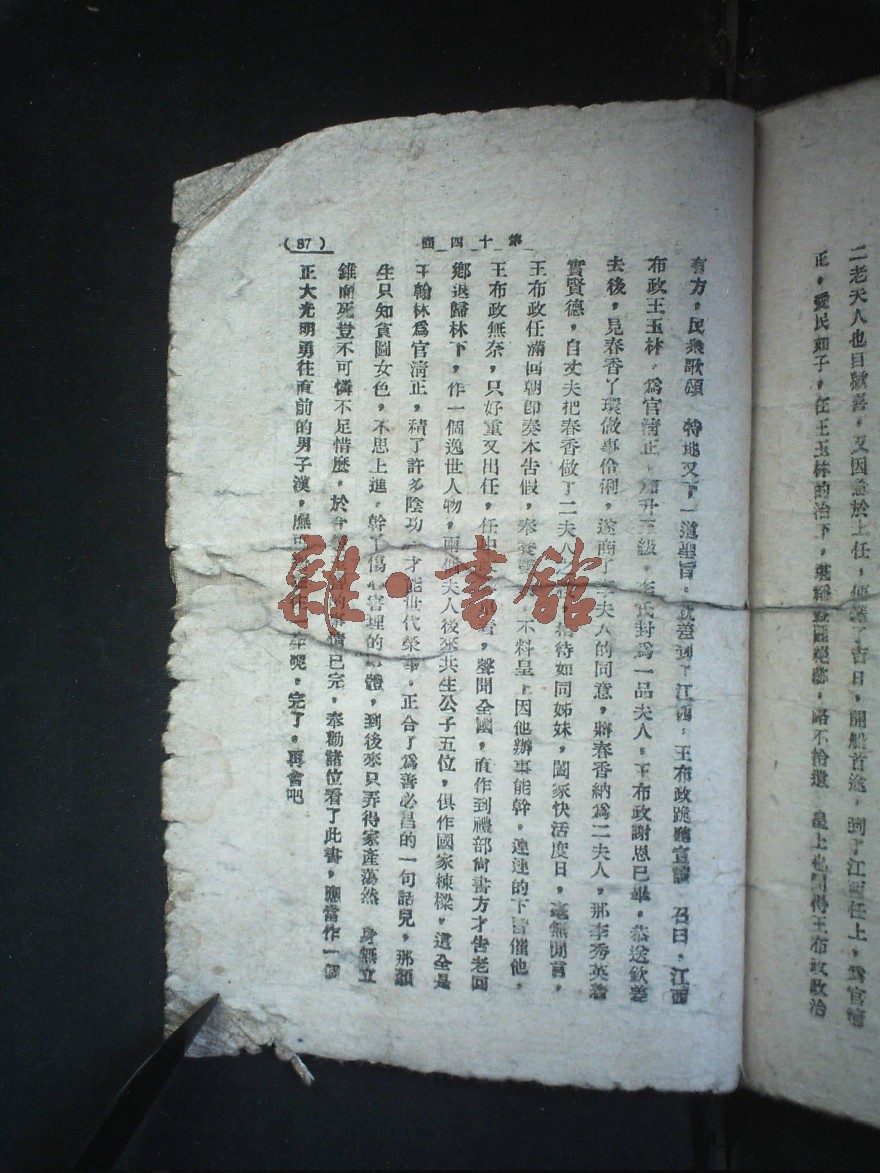 二老夫人也自歡喜，又因急於上任，便選了吉日，開船首途，到了江西任上，為官清
正，愛民如子，在王玉林的治下，路不拾遺 皇上也聞得王布政政治
第十四回
(87)
有方，民衆歌頌 特地又下一道聖旨，欽差到了江西，王布政跪聽宣讀 召曰，江西
布政王玉林，為官清正，加升三級，李氏封為一品夫人，王布政謝恩已畢，恭送欽差
去後，見春香丫環做事伶俐，遂商了李夫人的同意，將春香納為二夫人，那李秀英着
實賢德，自丈夫把春香做了二夫人，看待如同姊妹，闔家快活度日，毫無閒言，
王布政任滿回朝卽奏本告假，奉養 不料皇上因他辦事能幹，連連的下旨催他，
王布政無奈，只好重又出任，任 聲聞全國，直作到禮部尚書方才告老回
鄉退歸林下，作一個逸世人物，兩個夫人後來共生公子五位，俱作國家棟樑，這全是
王翰林為官清正，積了許多陰功，才能世代榮華，正合了為善必昌的一句話兒，那顏
生只知貪圖女色，不思上進，幹了傷心害理的 體，到後來只弄得家產蕩然 身無立
錐而死豈不可憐不足惜麼，於今 的事情已完，奉勸諸位看了此書，應當作一個
正大光明勇往直前的男子漢，庶 完了，再會吧
雜·書館